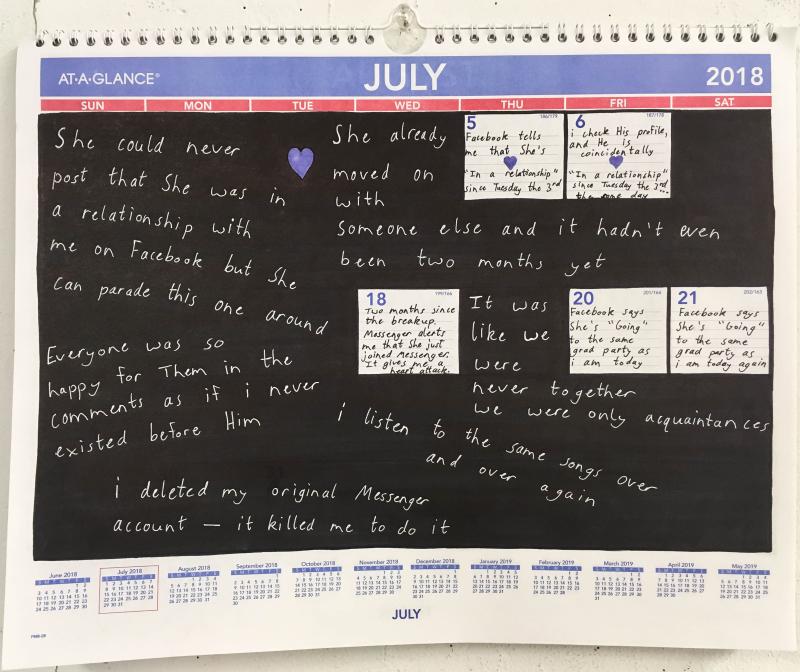 AT-A-GLANCE®
JULY
2018
SUN MON TUE WED THU FRI SAT
She could never
post that She was in
a relationship with
me on Facebook but She
can parade this one around
Everyone was so
happy for Them in the
comments as if i never
existed before Him
She already
moved on
with
someone else and it hadn't even
been two months yet
5 186/179
Facebook tells
me that She's
"In a relationship"
since Tuesday the 3rd
6 187/178
i check His profile,
and He is
coincidentally
"In a relationship"
since Tuesday the 3rd
the same day...
18 199/166
Two months since
the breakup.
Messenger alerts
me that She just
joined Messenger.
It gives me a
heart attack.
It was
like we
were
never together
we were only acquaintances
20 201/164
Facebook says
She's "Going"
to the same
grad party as
i am today
21 202/163
Facebook says
She's "Going"
to the same
grad party as
i am today again
i listen to the same songs over
and over again
i deleted my original Messenger
account — it killed me to do it
June 2018
July 2018
August 2018
September 2018
October 2018
November 2018
December 2018
January 2019
February 2019
March 2019
April 2019
May 2019
JULY